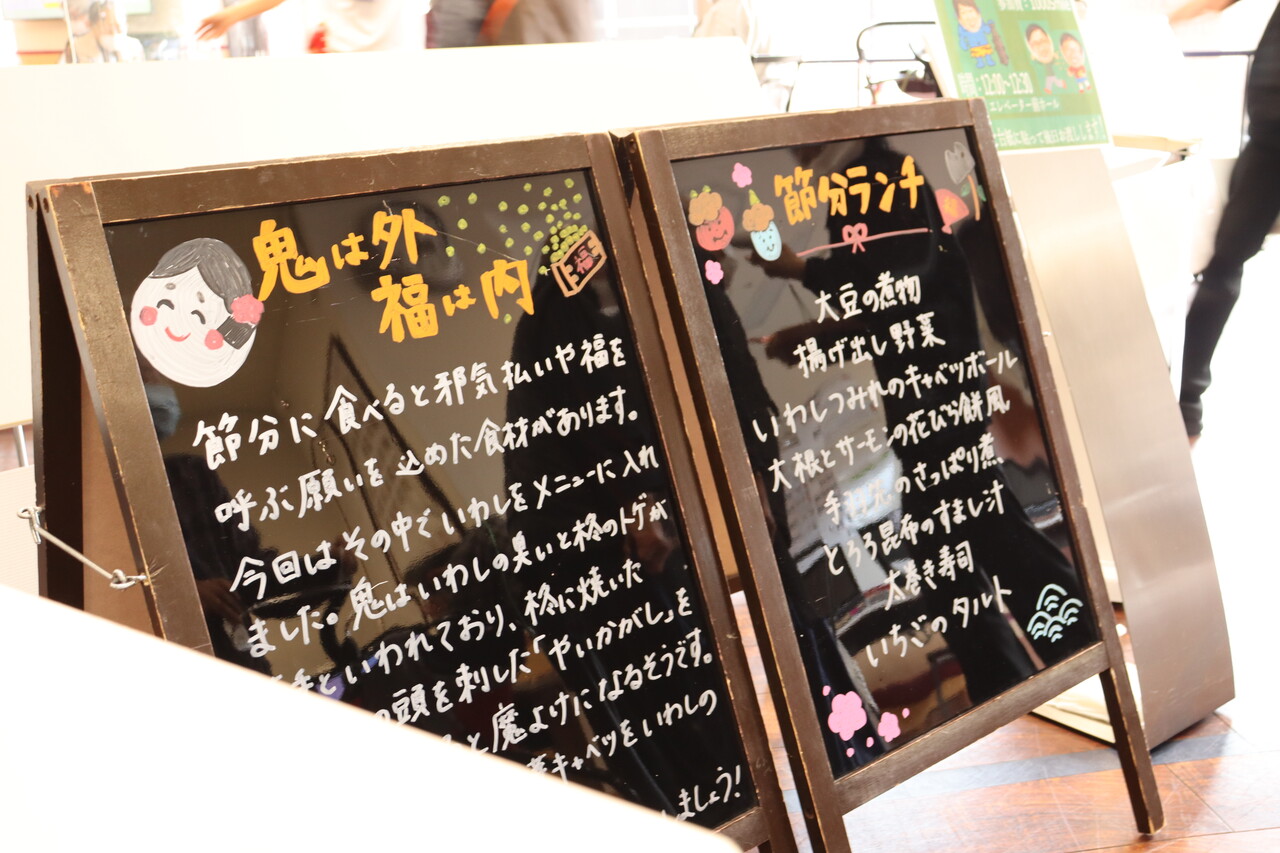 鬼は外
福は内
福
節分に食べると邪気払いや福を
呼ぶ願いを込めた食材があります。
今回はその中でいわしをメニューに入れ
ました。鬼はいわしの臭いと柊のトゲが
といわれており、柊に焼いた
の頭を刺した「やいかがし」を
と魔よけになるそうです。
キャベツをいわしの
ましょう!
節分ランチ
大豆の煮物
揚げ出し野菜
いわしつみれのキャベツボール
大根とサーモンの花びら餅風
のさっぱり煮
とろろ昆布のすまし汁
太巻き寿司
いちごのタルト
時間:12:00~12:30
エレベーター前ホール